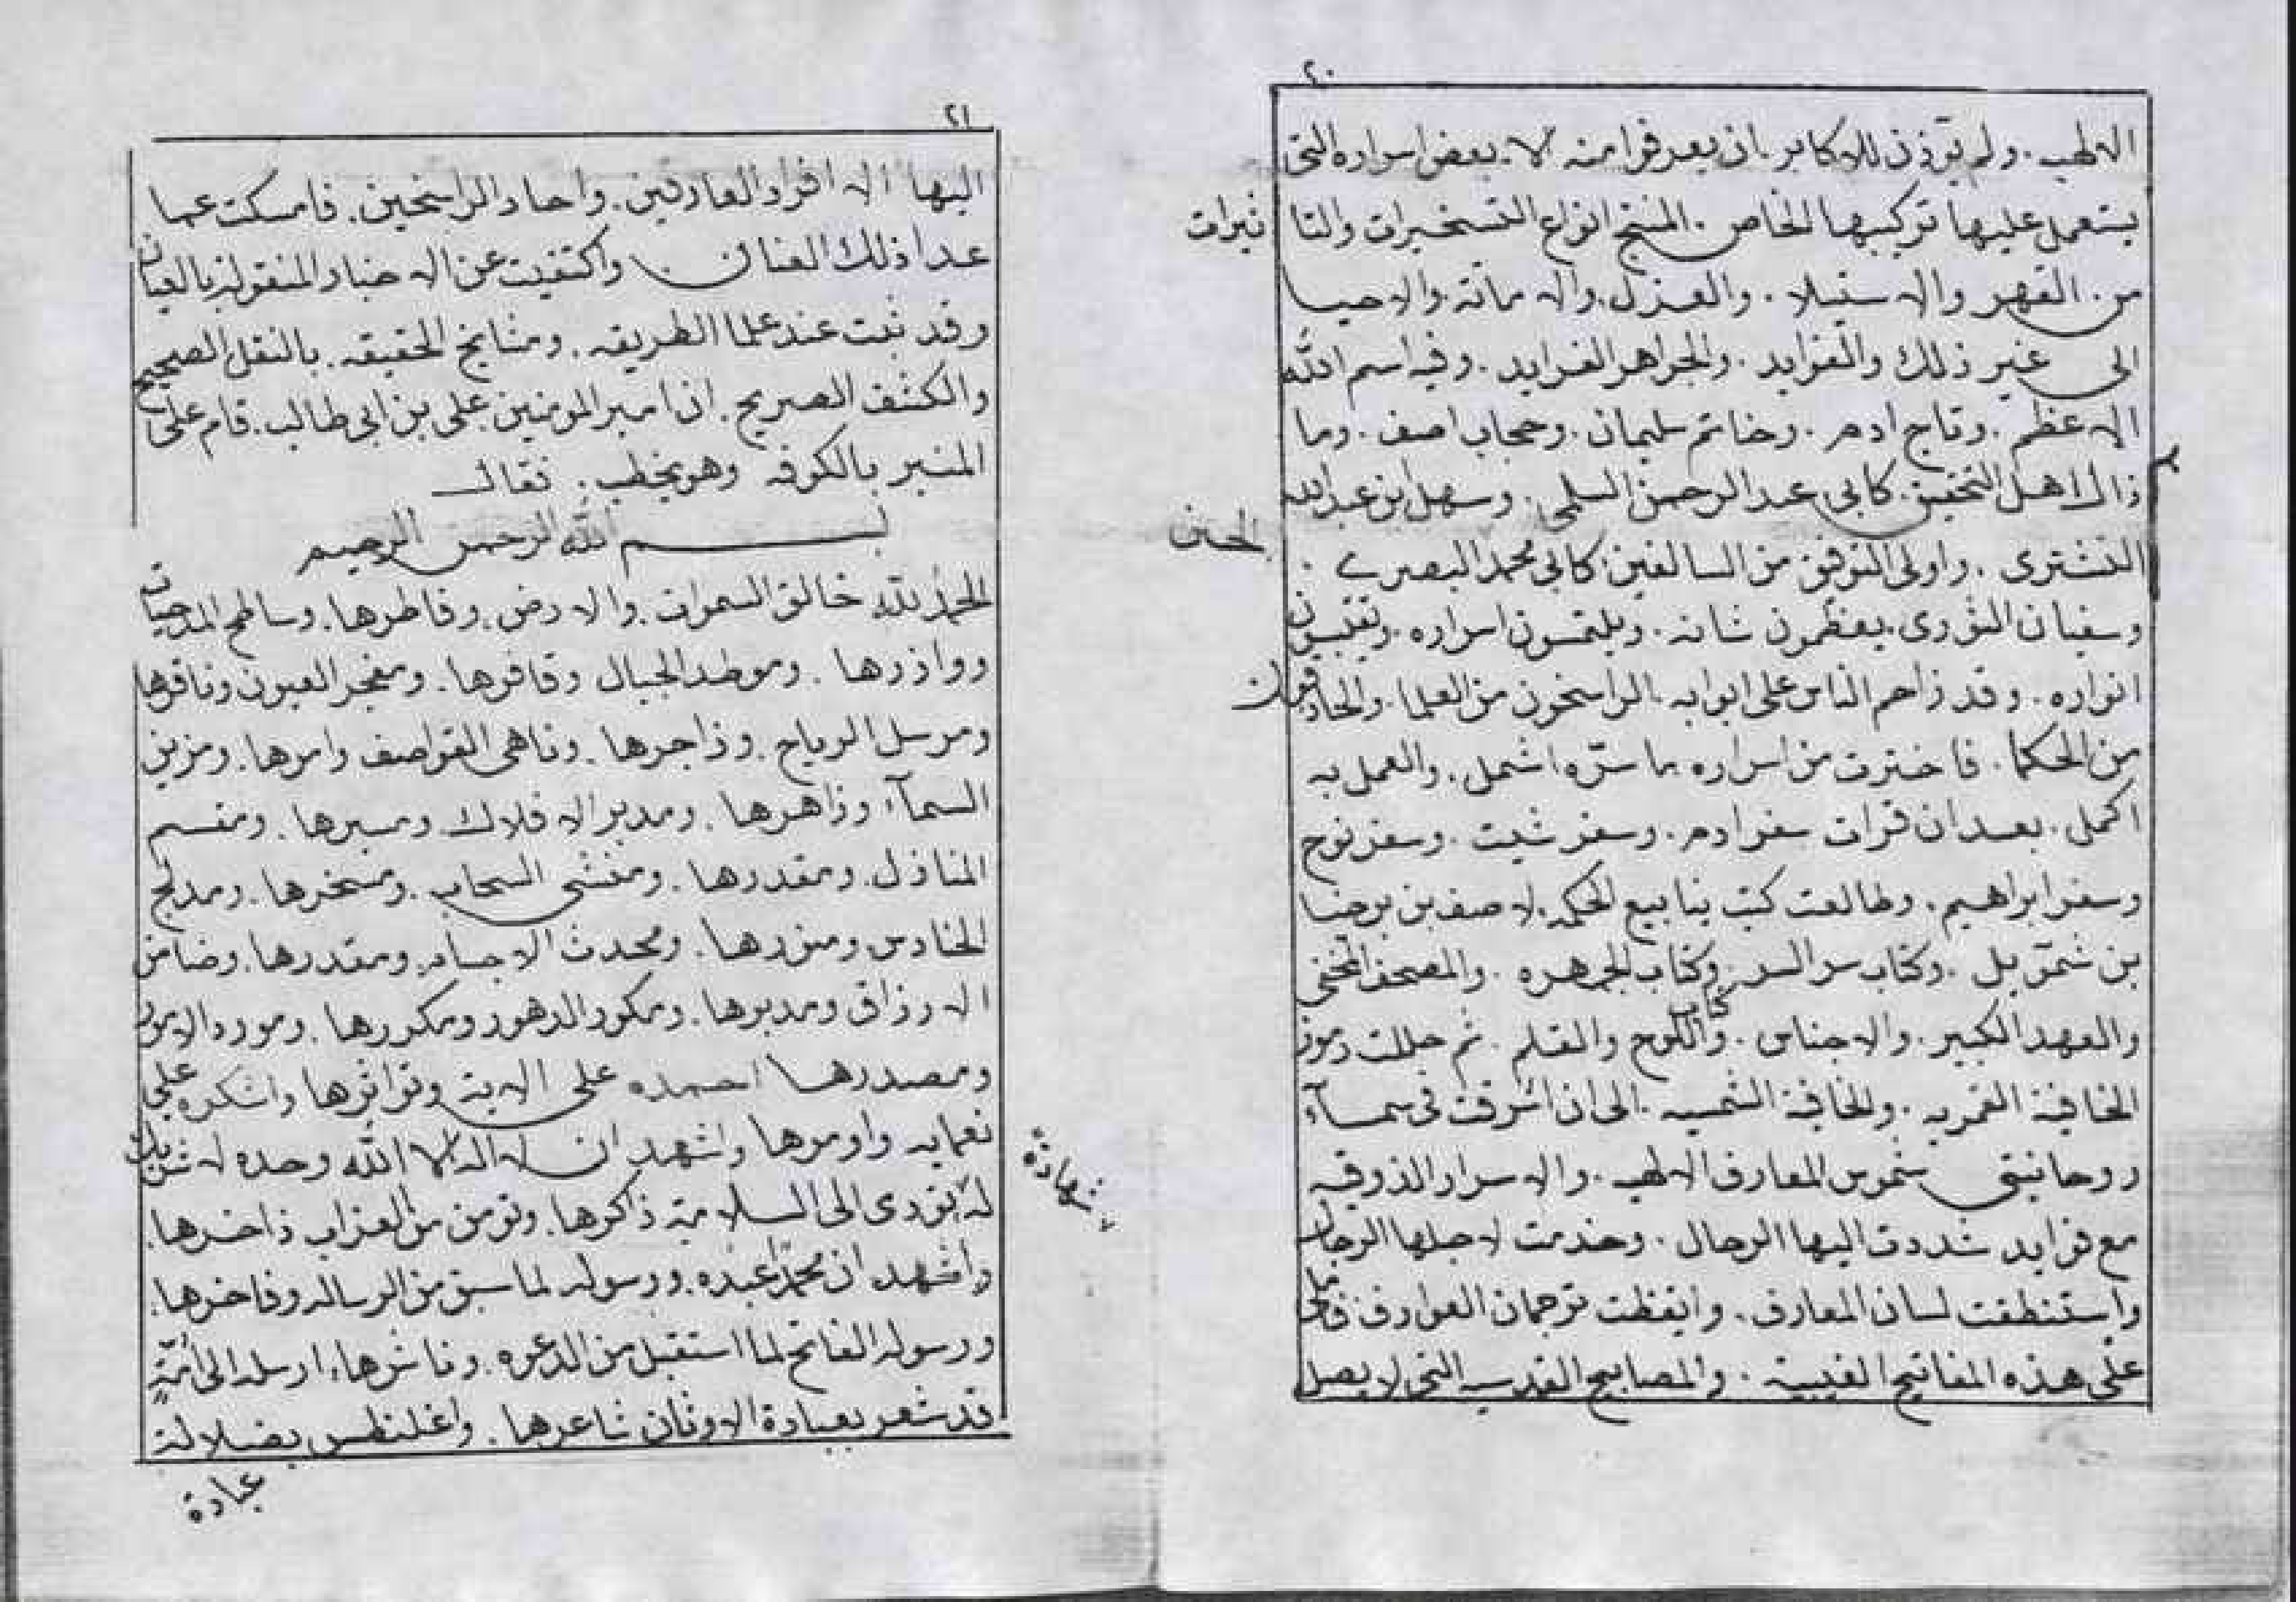 ٢٠
الالهيه. ولم يوذن للاكابر. ان يعرفوا منه الا. بعض اسراره التى
يستعمل عليها تركيبها الخاص. المنتج انواع التسخيرات والتا ثيرات
من. القهر والاستيلا. والعزل. والاماتة. والاحيا
الى غير ذلك والفوايد. والجواهر الفرايد. وفيه اسم الله
الاعظم. وتاج ادم. وخاتم سليمان. وحجاب اصف. وما
زال اهل التحقيق. كابى عبد الرحمن السلمى. وسهل ابن عبد الله
التسترى. واولى التوفيق من السالفين. كابى محمد البصرى. الحسن
وسفيان الثورى. يعظمون شانه. ويلتمسون اسراره. ويقتبسون
انواره. وقد زاحم الناس على ابوابه. الراسخون من العلما. والحاذقون
من الحكما. فاخترت من اسراره ما سرّه اشمل. والعمل به
اكمل. بعد ان قرات سفر ادم. وسفر شيث. وسفر نوح
وسفر ابراهيم. وطالعت كتب ينابيع الحكمه. لاصف بن برخيا
بن شمويل. وكتاب سر السر. وكتاب الجوهره. والمصحف المخفى
والعهد الكبير. والاجناس. وكتاب اللوح والقلم. ثم حللت رموز
الخافية القمريه. والخافية الشمسيه. الى ان اشرقت فى سمآء
روحانيتى شموس المعارف الالهيه. والاسرار الذوقيه
مع فوايد شددت اليها الرحال. وخدمت لاجلها الرجال
واستنطقت لسان المعارف. وايقظت ترجمان العوارف. فاملى
على هذه المفاتيح الغيبية. والمصابيح القدسيه التى لا يصل
٢١
اليها الا افراد العارفين. واحاد الراسخين. فامسكت عما
عدا ذلك العنان. واكتفيت عن الاخبار المنقولة بالعيان
وقد ثبت عند علما الطريقه. ومشايخ الحقيقه. بالنقل الصحيح
والكشف الصريح. ان امير المومنين على بن ابى طالب. قام على
المنبر بالكوفه وهو يخطب. فقال
بسم الله الرحمن الرحيم
الحمد لله خالق السموات والارض. وفاطرها. وساطح المدحيات
ووازرها. وموطد الجبال وقافرها. ومفجر العيون وناقرها
ومرسل الرياح. وزاجرها. وناهى القواصف وامرها. ومزين
السمآء وزاهرها. ومدبر الافلاك ومسيرها. ومقسم
المنازل. ومقدرها. ومنشى السحاب. ومسخرها. ومدلج
الحنادس ومنورها. ومحدث الاجسام. ومقدرها. وضامن
الارزاق ومدبرها. ومكور الدهور ومكررها. ومورد الامور
ومصدرها احمده على الايه وتواترها واشكره على
نعمايه واومرها واشهد ان لا اله الا الله وحده لا شريك
له تودى الى السلامة ذاكرها. وتومن من العذاب ذاخرها. شهادة
واشهد ان محمدا عبده. ورسوله لما سبق من الرسالة وفاخرها.
ورسوله الفاتح لما استقبل من الدعوه. وناشرها. ارسله الى امة
قد شعر بعبادة الاوثان شاعرها. واغلنطس بضلالة
عبادة